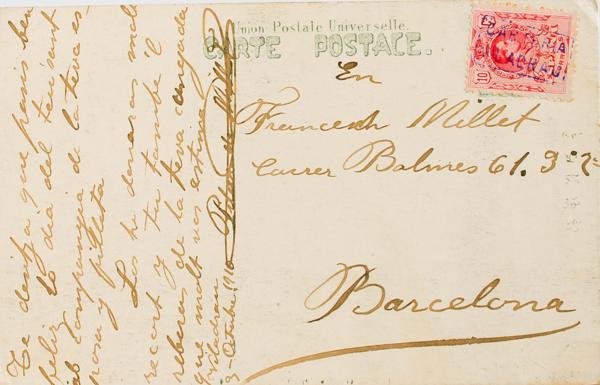 Union Postale Universelle.
CARTE POSTALE.
En
Francesch Millet
Carrer Balmes 61. 3º 2ª
Barcelona
Te desitja que passis ben
felis lo dia del teu sant
ab companyia de la teva es-
posa y filleta
Los hi donaras mols
recort y tu tambe 'l
rebras de la teva cunyada
que molt vos estima
Viladrau
3-Octubre 1910